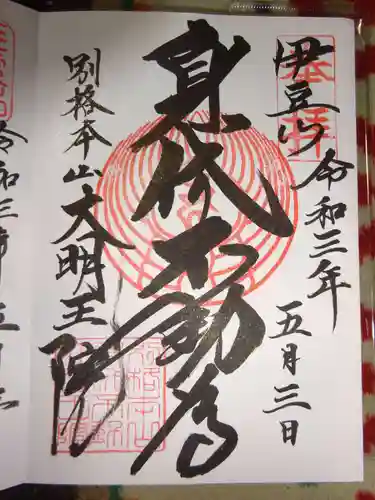 奉拝
伊豆山
令和三年
五月三日
身代不動尊
別格本山
大明王院
令和三年